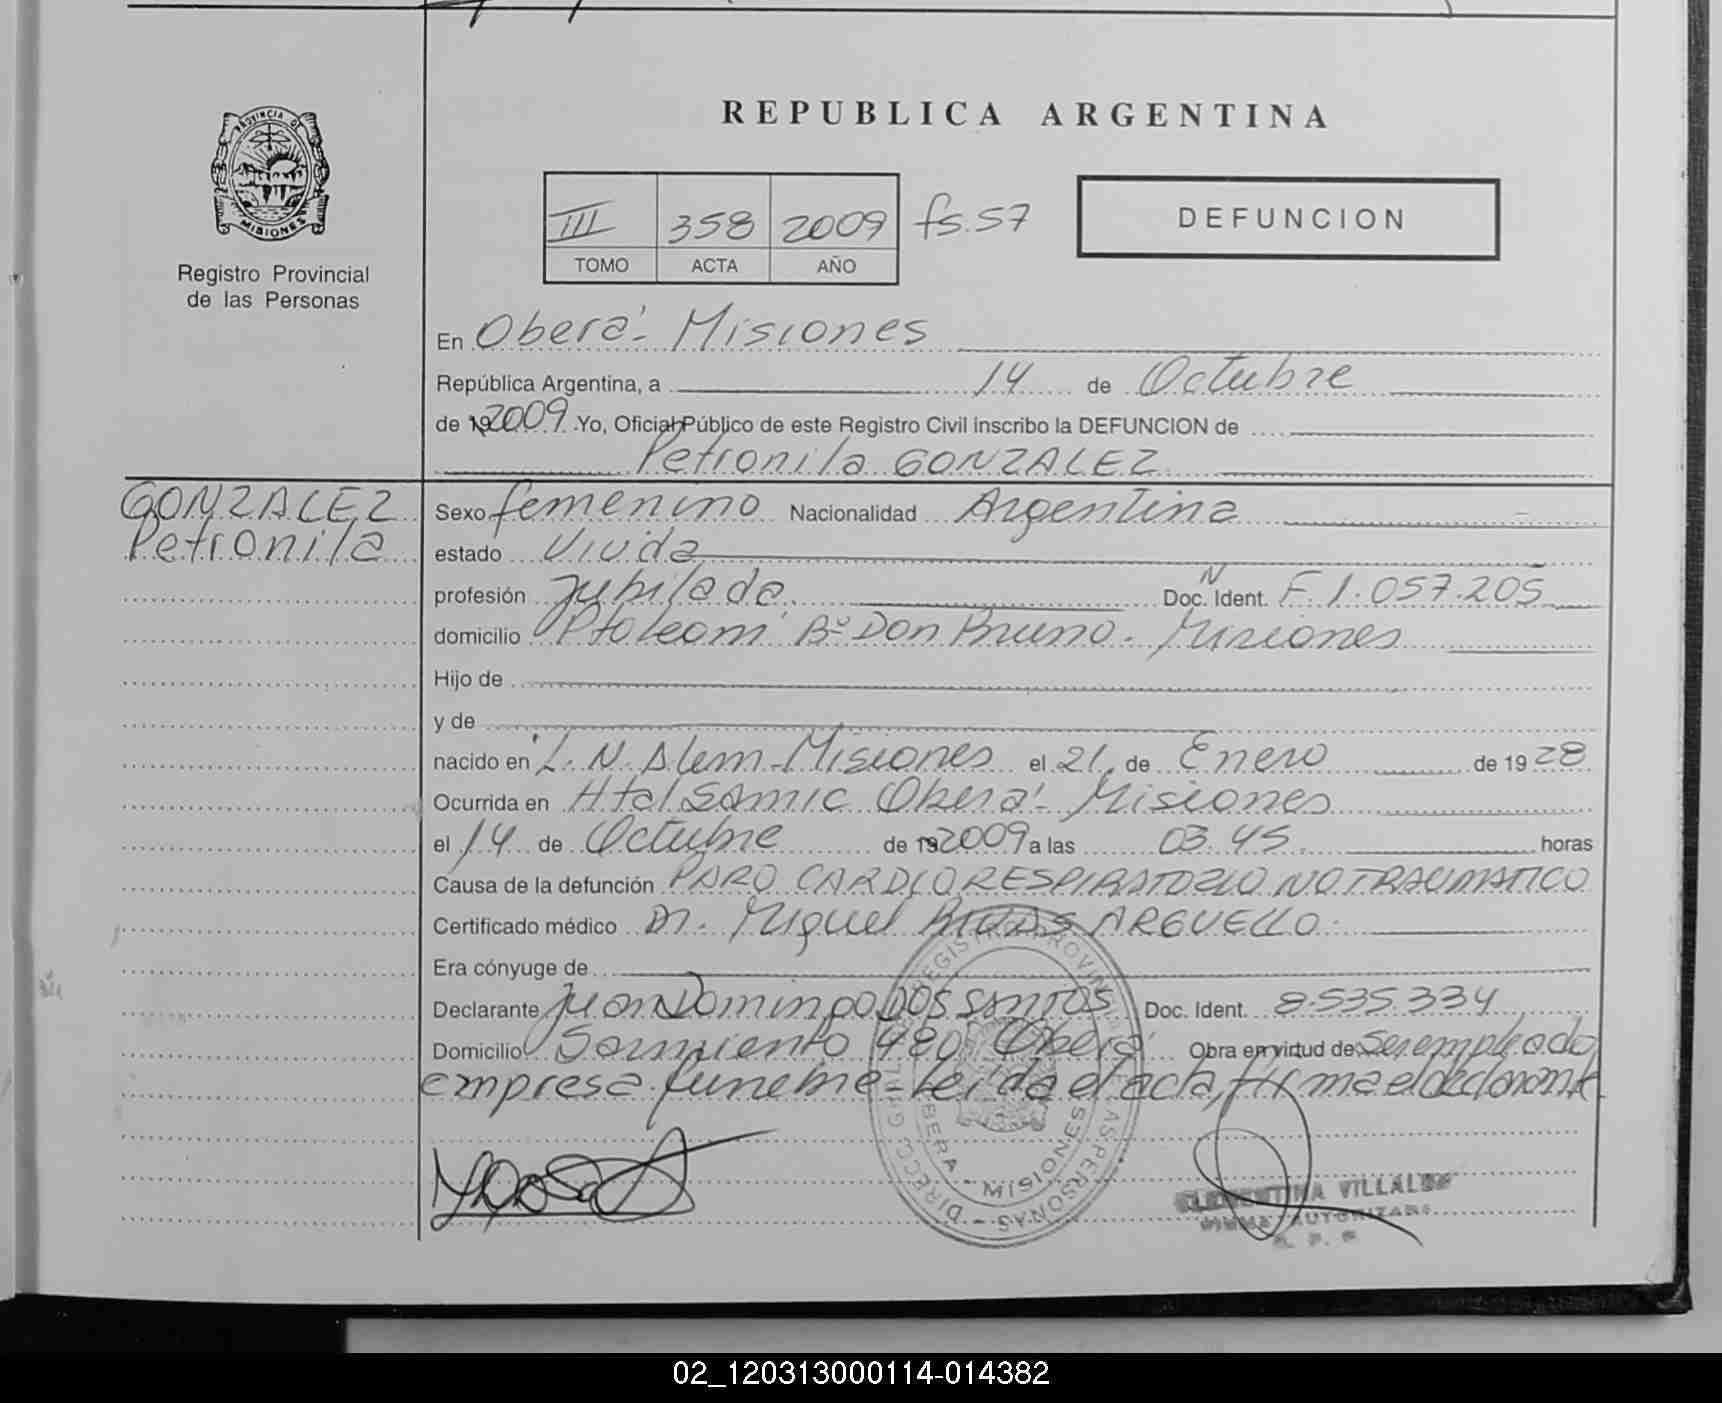 PROVINCIA DE
MISIONES
Registro Provincial
de las Personas
REPUBLICA ARGENTINA
III 358 2009 fs. 57
TOMO ACTA AÑO
DEFUNCION
En Oberá - Misiones
República Argentina, a 14 de Octubre
de 192009 Yo, Oficial Público de este Registro Civil inscribo la DEFUNCION de
Petronila GONZALEZ
GONZALEZ
Petronila
Sexo femenino Nacionalidad Argentina
estado Viuda
profesión Jubilada Doc. N Ident. F 1.057.205
domicilio Bº Don Bruno - Misiones
Hijo de
y de
nacido en L. N. Alem - Misiones el 21 de Enero de 1928
Ocurrida en Htal SAMIC Oberá - Misiones
el 14 de Octubre de 192009 a las 03.45 horas
Causa de la defunción PARO CARDIORESPIRATORIO NO TRAUMATICO
Certificado médico Dr. Miguel ARGUELLO
Era cónyuge de
Declarante Juan Domingo DOS SANTOS Doc. Ident. 8.535.334
Domicilio Sarmiento 480 Oberá Obra en virtud de Ser empleado
empresa funebre - Leída el acta, firma el declarante
OBERA - MISIONES
VILLALBA
02_120313000114-014382